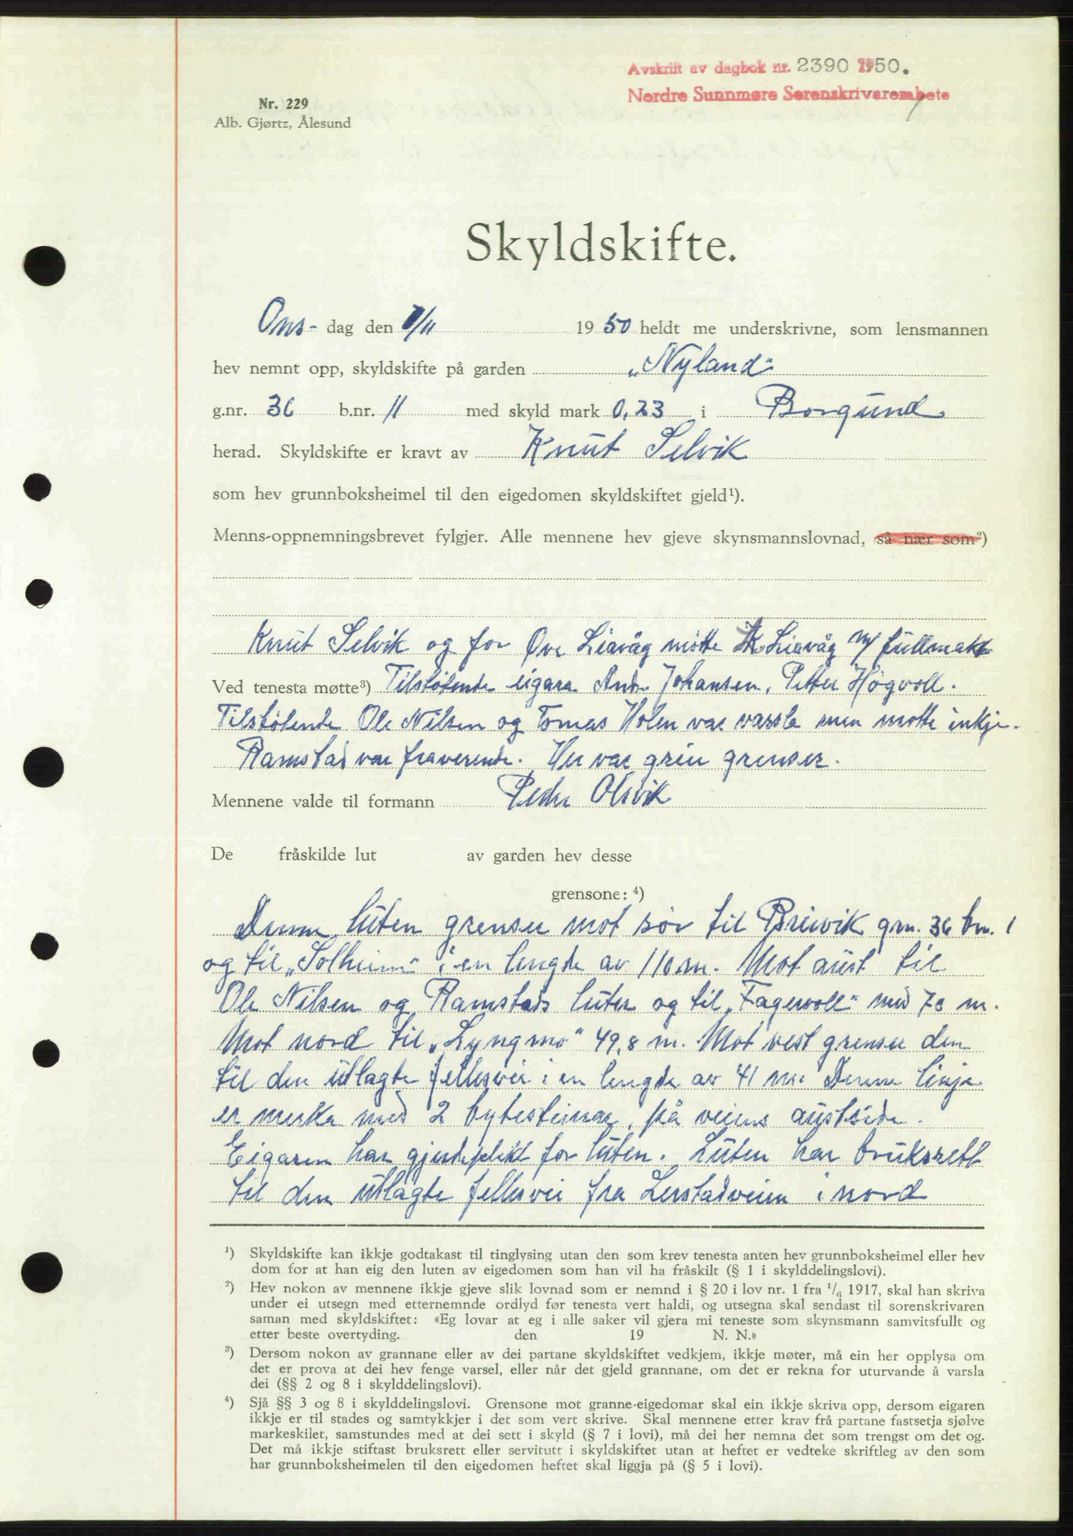 Avskrift av dagbok nr. 2390 1950.
Nordre Sunnmøre Sorenskrivarembete
Nr. 229
Alb. Gjørtz, Ålesund
Skyldskifte.
Ons- dag den 1/11 1950 heldt me underskrivne, som lensmannen
hev nemnt opp, skyldskifte på garden „Nyland“
g.nr. 36 b.nr. 11 med skyld mark 0,23 i Borgund
herad. Skyldskifte er kravt av Knut Selvik
som hev grunnboksheimel til den eigedomen skyldskiftet gjeld¹).
Menns-oppnemningsbrevet fylgjer. Alle mennene hev gjeve skynsmannslovnad, så nær som²)
Knut Selvik og for Ove Liavåg møtte Liavåg m/ fullmakt
Ved tenesta møtte³) Tilstøtende eigara Andr. Johansen, Petter Høgvoll.
Tilstøtende Ole Nilsen og Tomas Holen var varsla men møtte inkje.
Ramstad var fraverende. Her var grein grenser.
Mennene valde til formann Peder Olsvik
De fråskilde lut av garden hev desse
grensone: ⁴)
Denne luten grenser mot sør til Breivik grn. 36 brn. 1
og til „Solheim“ i en lengde av 110 m. Mot aust til
Ole Nilsen og Ramstads luter og til „Fagervoll“ med 70 m.
Mot nord til „Lyngmo“ 49,8 m. Mot vest grenser den
til den utlagte fellesvei i en lengde av 41 m. Denne linja
er merka med 2 bytesteinar, på veiens austside.
Eigaren har gjerdeplikt for luten. Luten har bruksrett
til den utlagte fellesvei fra Lerstadveien i nord
¹) Skyldskifte kan ikkje godtakast til tinglysing utan den som krev tenesta anten hev grunnboksheimel eller hev
dom for at han eig den luten av eigedomen som han vil ha fråskilt (§ 1 i skylddelingslovi).
²) Hev nokon av mennene ikkje gjeve slik lovnad som er nemnd i § 20 i lov nr. 1 fra ¹/₆ 1917, skal han skriva
under ei utsegn med etternemnde ordlyd før tenesta vert haldi, og utsegna skal sendast til sorenskrivaren
saman med skyldskiftet: «Eg lovar at eg i alle saker vil gjera mi teneste som skynsmann samvitsfullt og
etter beste overtyding. den 19 N. N.»
³) Dersom nokon av grannane eller av dei partane skyldskiftet vedkjem, ikkje møter, må ein her opplysa om
det er prova at dei hev fenge varsel, eller når det gjeld grannane, om det er rekna for uturvande å varsla
dei (§§ 2 og 8 i skylddelingslovi).
⁴) Sjå §§ 3 og 8 i skylddelingslovi. Grensone mot granne-eigedomar skal ein ikkje skriva opp, dersom eigaren
ikkje er til stades og samtykkjer i det som vert skrive. Skal mennene etter krav frå partane fastsetja sjølve
markeskilet, samstundes med at dei sett i skyld (§ 7 i lovi), må dei her nemna det som trengst om det og.
Det må ikkje stiftast bruksrett eller servitutt i skyldskiftet utan at heftet er vedteke skriftleg av den som
har grunnboksheimelen til den eigedomen heftet skal liggja på (§ 5 i lovi).